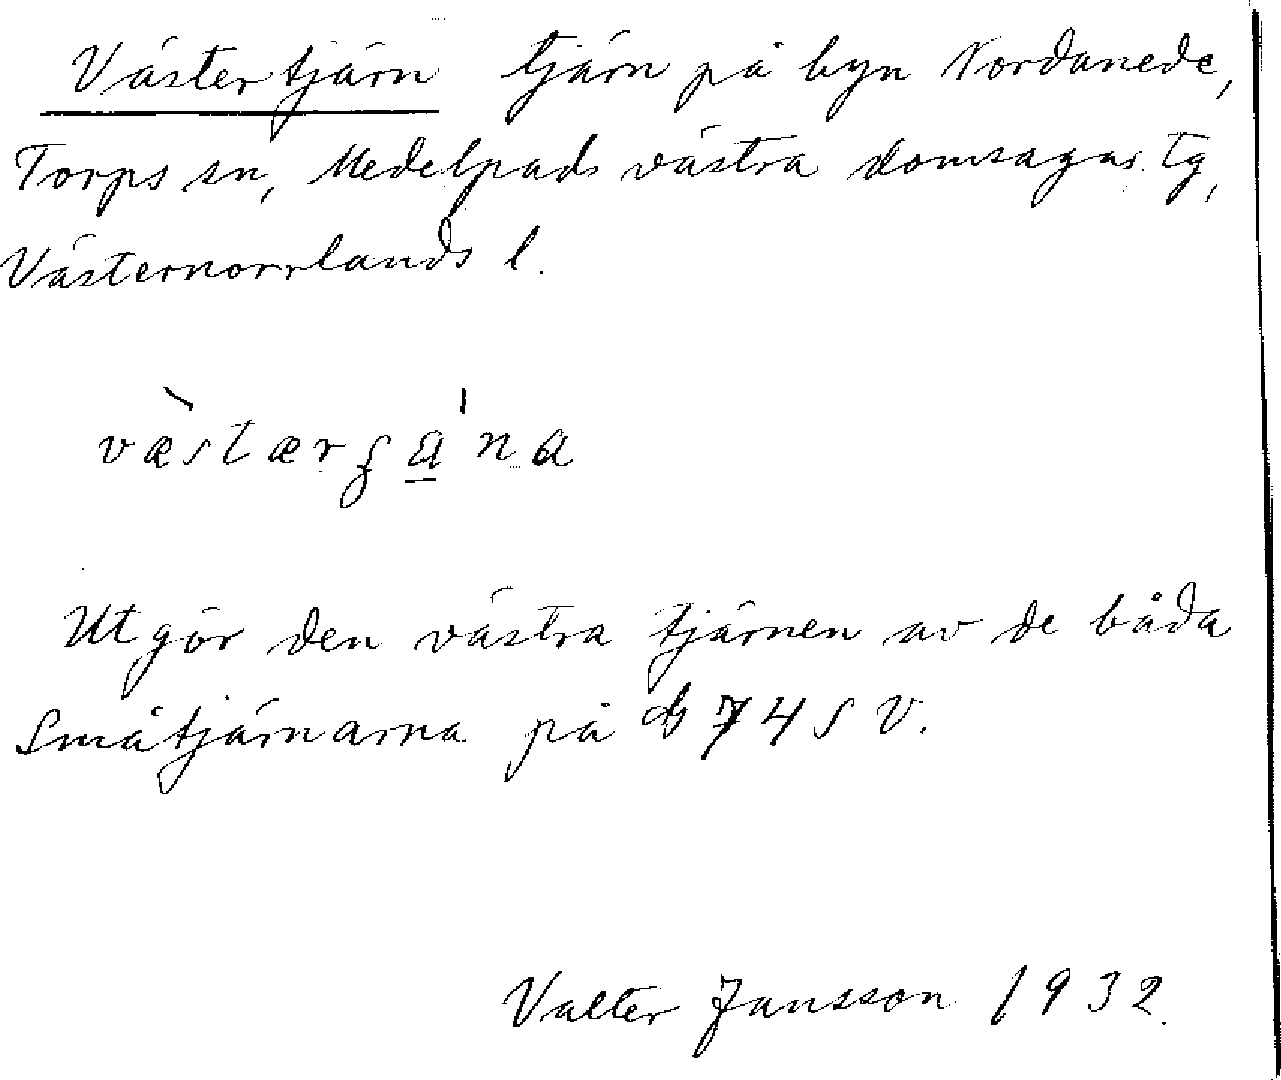 Västertjärn tjärn på byn Nordanede,
Torps sn, Medelpads västra domsagas tg,
Västernorrlands l.
væ̀stærʂa̲'na
Utgör den västra tjärnen av de båda
Småtjärnarna på db 74 SV.
Valter Jansson 1932.